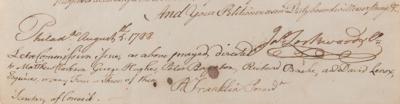 And your Petitioner as in Duty bound will ever Pray &c
Philada. August 5. 1788
Jos. Lockwood & Co
Let a Commission issue, as above prayed, directed
to Matthew Clarkson, George Hughes, Peter Baynton, Richard Bache, & David Lenox,
Esquires, or any four or three of them
B Franklin Presidt.
Secretary of Council.